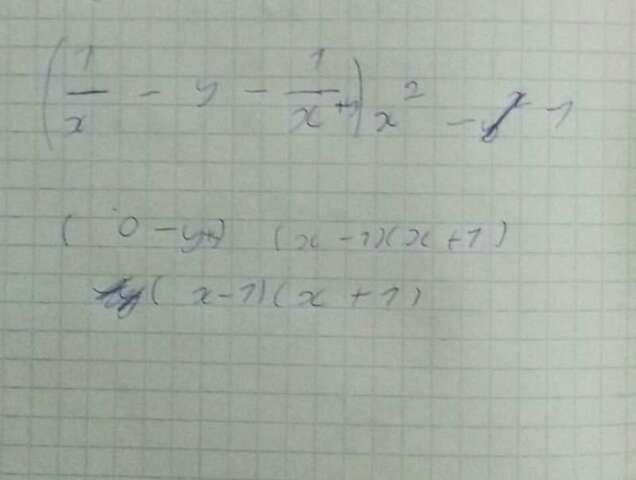 (1/x - y - 1/x+y) x² - x - 1
( 0 - y+y) (x-1)(x+1)
(x-1)(x+1)